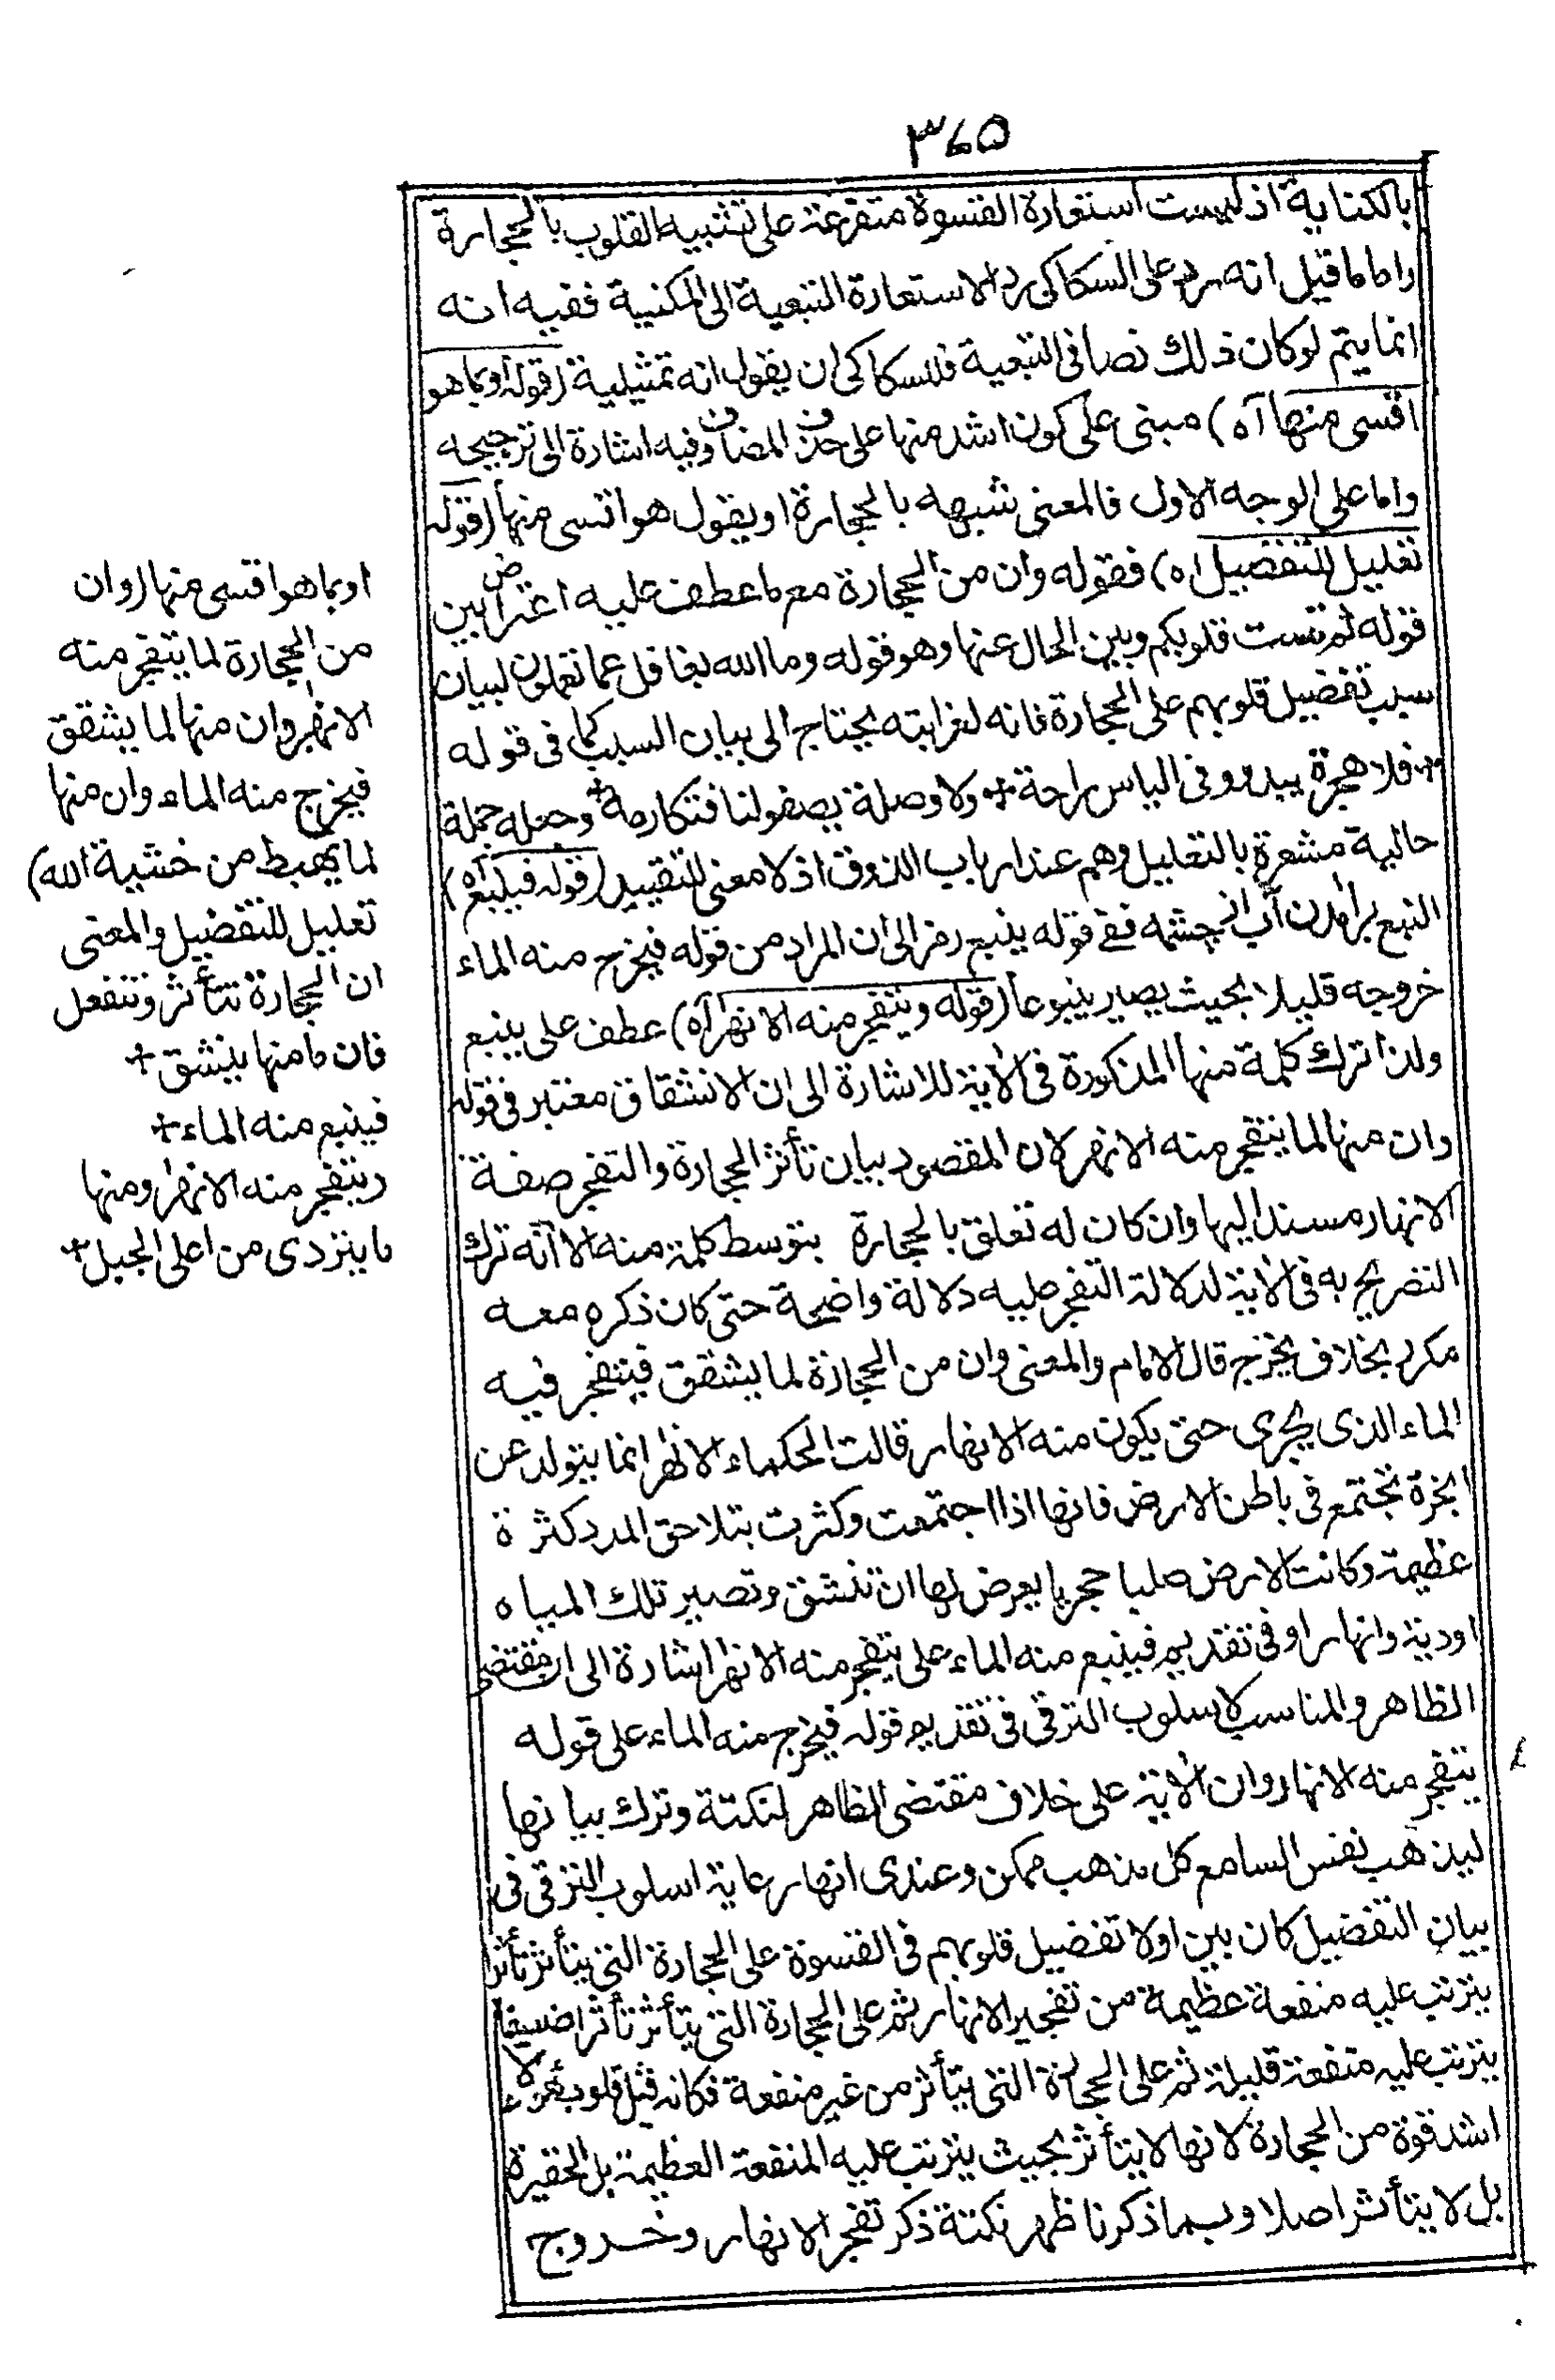 ٣٦٥
بالكناية اذ ليست استعارة القسوة متفرعة على تشبيه القلوب بالحجارة
واما ما قيل انه رد على السكاكى رد الاستعارة التبعية الى المكنية ففيه انه
انما يتم لو كان ذلك نصا فى التبعية فللسكاكى ان يقول انه تمثيلية (قوله او بما هو
اقسى منها آه) مبنى على كون اشد منها على حذف المضاف وفيه اشارة الى ترجيحه
واما على الوجه الاول فالمعنى شبهه بالحجارة او يقول هو اقسى منها (قوله
تعليل للتفضيل اه) فقوله وان من الحجارة مع ما عطف عليه اعتراض بين
قوله ثم قست قلوبكم وبين الحال عنها وهو قوله وما الله بغافل عما تعملون لبيان
سبب تفضيل قلوبهم على الحجارة فانه لغرابته يحتاج الى بيان السبب كما فى قوله
فلا هجرة يبدو وفى الياس راحة + ولا وصلة يصفو لنا فتكارمه + وجعله جملة
حالية مشعرة بالتعليل وهم عند ارباب الذوق اذ لا معنى للتقييد (قوله فينبع آه)
النبع برامدن آب از چشمه ففى قوله ينبع رمز الى ان المراد من قوله فيخرج منه الماء
خروجه قليلا بحيث يصير ينبوعا (قوله ويتفجر منه الانهر آه) عطف على ينبع
ولذا ترك كلمة منها المذكورة فى الاية للاشارة الى ان الانشقاق معتبر فى قوله
وان منها لما يتفجر منه الانهر لان المقصود بيان تأثر الحجارة والتفجر صفة
الانهار مسند اليها وان كان له تعلق بالحجارة بتوسط كلمة منه الا انه ترك
التصريح به فى الاية لدلالة التفجر عليه دلالة واضحة حتى كان ذكره معه
مكرر بخلاف يخرج قال الامام والمعنى وان من الحجارة لما يشقق فيتفجر فيه
الماء الذى يجرى حتى يكون منه الانهار قالت الحكماء الانهر انما يتولد عن
ابخرة تجتمع فى باطن الارض فانها اذا اجتمعت وكثرت بتلاحق المدد كثرة
عظيمة وكانت الارض صلبا حجريا يعرض لها ان تنشق وتصير تلك المياه
اودية وانهارا وفى تقديم فينبع منه الماء على يتفجر منه الانهر اشارة الى ان مقتضى
الظاهر والمناسب لاسلوب الترقى فى تقديم قوله فيخرج منه الماء على قوله
يتفجر منه الانهار وان الاية على خلاف مقتضى الظاهر لنكتة وترك بيانها
ليذهب نفس السامع كل مذهب ممكن وعندى انها رعاية اسلوب الترقى فى
بيان التفضيل كان بين اولا تفضيل قلوبهم فى القسوة على الحجارة التى يتأثر تأثرا
يترتب عليه منفعة عظيمة من تفجير الانهار ثم على الحجارة التى يتأثر تأثرا ضعيفا
يترتب عليه منفعة قليلة ثم على الحجارة التى يتأثر من غير منفعة فكانه قيل قلوب هؤلاء
اشد قوة من الحجارة لانها لا يتأثر بحيث يترتب عليه المنفعة العظيمة بل الحقيرة
بل لا يتأثر اصلا وبما ذكرنا ظهر نكتة ذكر تفجر الانهار وخروج
او بما هو اقسى منها (وان
من الحجارة لما يتفجر منه
الانهر وان منها لما يشقق
فيخرج منه الماء وان منها
لما يهبط من خشية الله)
تعليل للتفضيل والمعنى
ان الحجارة تتأثر وتنفعل
فان ما منها ينشق +
فينبع منه الماء +
ويتفجر منه الانهر ومنها
ما يتردى من اعلى الجبل +